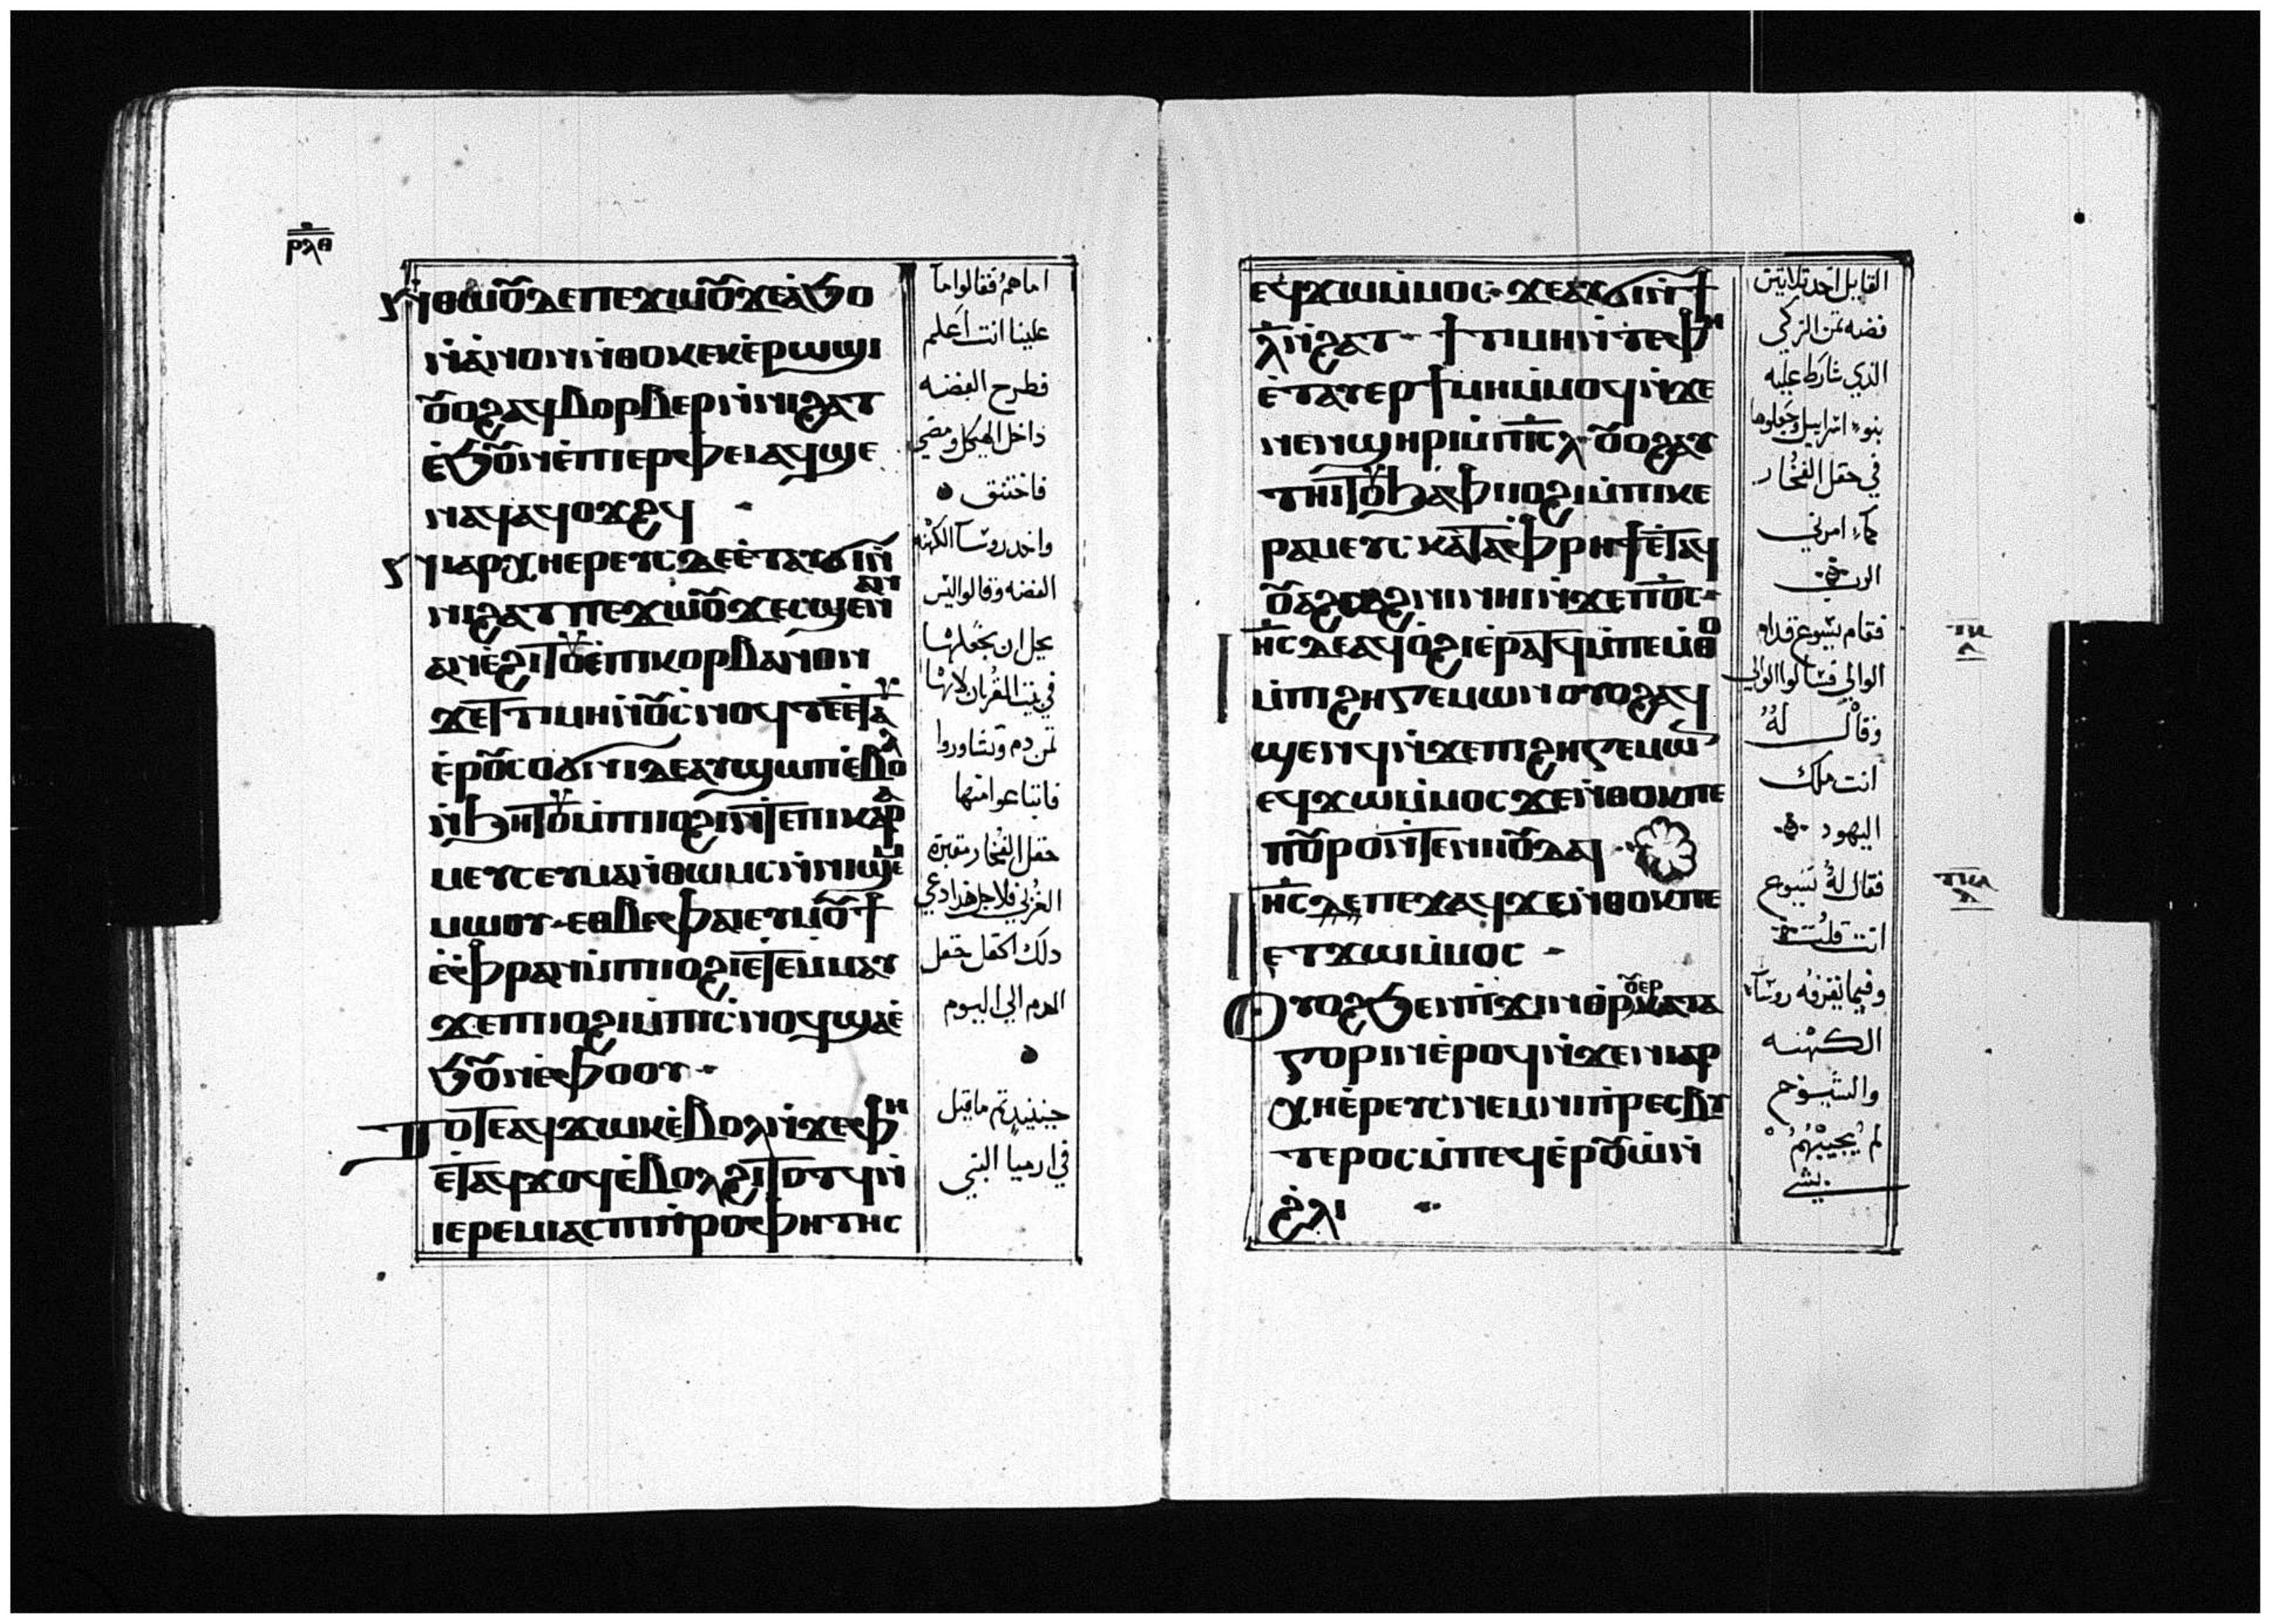 ⲣⲗⲑ
ⲛ̀ⲑⲱⲟⲩ ⲇⲉ ⲡⲉϫⲱⲟⲩ ϫⲉ ⲁ̀ϧⲟ
ⲛ̀ⲁⲛⲟⲛ ⲛ̀ⲑⲟⲕ ⲉⲕⲉ̀ⲣⲱϣⲓ
ⲟⲩⲟϩ ⲁϥⲃⲟⲣⲃⲉⲣ ⲛ̀ⲛⲓϩⲁⲧ
ⲉ̀ϧⲟⲩⲛ ⲉ̀ⲡⲓⲉⲣⲫⲉⲓ ⲁϥϣⲉ
ⲛⲁϥ ⲁϥⲟϫϩϥ
ⲛⲓⲁⲣⲭⲏⲉⲣⲉⲩⲥ ⲇⲉ ⲉ̀ⲧⲁⲩϭⲓ ⲛ̀
ⲛⲓϩⲁⲧ ⲡⲉϫⲱⲟⲩ ϫⲉ ⲥϣⲉ ⲛ̀ⲁⲛ
ⲁⲛ ⲉ̀ϩⲓⲧⲟⲩ ⲉ̀ⲡⲓⲕⲟⲣⲃⲁⲛⲟⲛ
ϫⲉ ⲧⲧⲓⲙⲏ ⲛ̀ⲟⲩⲥ̀ⲛⲟϥ ⲧⲉ ⲉ̀ⲧⲁⲩ
ⲉ̀ⲣⲟⲩⲥⲟϭⲛⲓ ⲇⲉ ⲁⲩϣⲱⲡ ⲉ̀ⲃⲟⲗ
ⲛ̀ϧⲏⲧⲟⲩ ⲙ̀ⲡⲓⲓⲟϩⲓ ⲛ̀ⲧⲉ ⲡⲓⲕⲁⲣⲁ
ⲙⲉⲩⲥ ⲉⲩⲙⲁⲛ̀ⲑⲱⲙⲥ ⲛ̀ⲛⲓϣⲉⲙ
ⲙⲱⲟⲩ ⲉⲑⲃⲉ ⲫⲁⲓ ⲉⲩⲙⲟⲩϯ
ⲉ̀ⲫ̀ⲣⲁⲛ ⲙ̀ⲡⲓⲓⲟϩⲓ ⲉ̀ⲧⲉⲙ̀ⲙⲁⲩ
ϫⲉ ⲡⲓⲓⲟϩⲓ ⲙ̀ⲡⲓⲥ̀ⲛⲟϥ ϣⲁ ⲉ̀
ϧⲟⲩⲛ ⲉ̀ⲫⲟⲟⲩ
ⲧⲟⲧⲉ ⲁϥϫⲱⲕ ⲉ̀ⲃⲟⲗ ⲛ̀ϫⲉ ⲫⲏ
ⲉ̀ⲧⲁϥϫⲟϥ ⲉ̀ⲃⲟⲗ ϩⲓⲧⲟⲧϥ ⲛ̀
ⲓⲉⲣⲉⲙⲓⲁⲥ ⲡⲓⲡ̀ⲣⲟⲫⲏⲧⲏⲥ
اما هم فقالوا ما
علينا انت اعلم
فطرح الفضه
داخل الهيكل ومضي
فاختنق
واخد روسآ الكهنه
الفضه وقالوا ليس
يحل ان نجعلها
في بيت القربان لانها
تمن دم وتشاوروا
فابتاعوا منها
حقل الفخار مقبرة
للغربا فلاجل هدا دعي
دلك الحقل حقل
الدم الي اليوم
حينيد تم ما قيل
في ارميا النبي
ⲉϥϫⲱ ⲙ̀ⲙⲟⲥ ϫⲉ ⲁⲩϭⲓ ⲛ̀ϯ
ⲗ̅ ⲛ̀ϩⲁⲧ ϯⲧⲓⲙⲏ ⲛ̀ⲧⲉ ⲫⲏ
ⲉ̀ⲧⲁⲩⲉⲣϯⲙⲏ ⲙ̀ⲙⲟϥ ⲛ̀ϫⲉ
ⲛⲉⲛϣⲏⲣⲓ ⲙ̀ⲡⲓⲥ̅ⲗ̅ ⲟⲩⲟϩ ⲁⲩ
ⲧⲏⲓⲧⲟⲩ ϧⲁ ⲫ̀ⲓⲟϩⲓ ⲙ̀ⲡⲓⲕⲉ
ⲣⲁⲙⲉⲩⲥ ⲕⲁⲧⲁ ⲫ̀ⲣⲏϯ ⲉ̀ⲧⲁϥ
ⲟⲩⲁϩⲥⲁϩⲛⲓ ⲛⲏⲓ ⲛ̀ϫⲉ ⲡⲟ̅ⲥ̅
ⲓⲏ̅ⲥ̅ ⲇⲉ ⲁϥⲟ̀ϩⲓ ⲉ̀ⲣⲁⲧϥ ⲙ̀ⲡⲉⲙ̀ⲑⲟ
ⲙ̀ⲡⲓϩⲏⲅⲉⲙⲱⲛ ⲟⲩⲟϩ ⲁϥ
ϣⲉⲛϥ ⲛ̀ϫⲉ ⲡⲓϩⲏⲅⲉⲙⲱⲛ
ⲉϥϫⲱ ⲙ̀ⲙⲟⲥ ϫⲉ ⲛ̀ⲑⲟⲕ ⲡⲉ
ⲡⲟⲩⲣⲟ ⲛ̀ⲧⲉ ⲛⲓⲓⲟⲩⲇⲁⲓ
ⲓⲏ̅ⲥ̅ ⲇⲉ ⲡⲉϫⲁϥ ϫⲉ ⲛ̀ⲑⲟⲕ ⲡⲉ
ⲉⲧϫⲱ ⲙ̀ⲙⲟⲥ
ⲟⲩⲟϩ ϧⲉⲛ ⲡ̀ϫⲓⲛⲑⲣⲟⲩⲉⲣⲕⲁⲧⲁ
ⲅⲟⲣⲓⲛ ⲉ̀ⲣⲟϥ ⲛ̀ϫⲉ ⲛⲓⲁⲣ
ⲭⲏⲉ̀ⲣⲉⲩⲥ ⲛⲉⲙ ⲛⲓⲡ̀ⲣⲉⲥⲃⲩ
ⲧⲉⲣⲟⲥ ⲙ̀ⲡⲉϥⲉ̀ⲣⲟⲩⲱ̀ ⲛ̀
ϩ̀ⲗⲓ
القايل اخد تلاتين
فضه تمن الزكي
الذي شارط عليه
بنو اسرايل وجعلوها
في حقل الفخار
كما امرني
الرب
فقام يسوع قدام
الوالي فسالوا الوالي
وقال له
انت ملك
اليهود
فقال له يسوع
انت قلت
وفيما يقرفه روسآ
الكهنه
والشيوخ
لم يجيبهم
بشي
ⲧⲕ
ⲁ
ⲧⲕⲁ